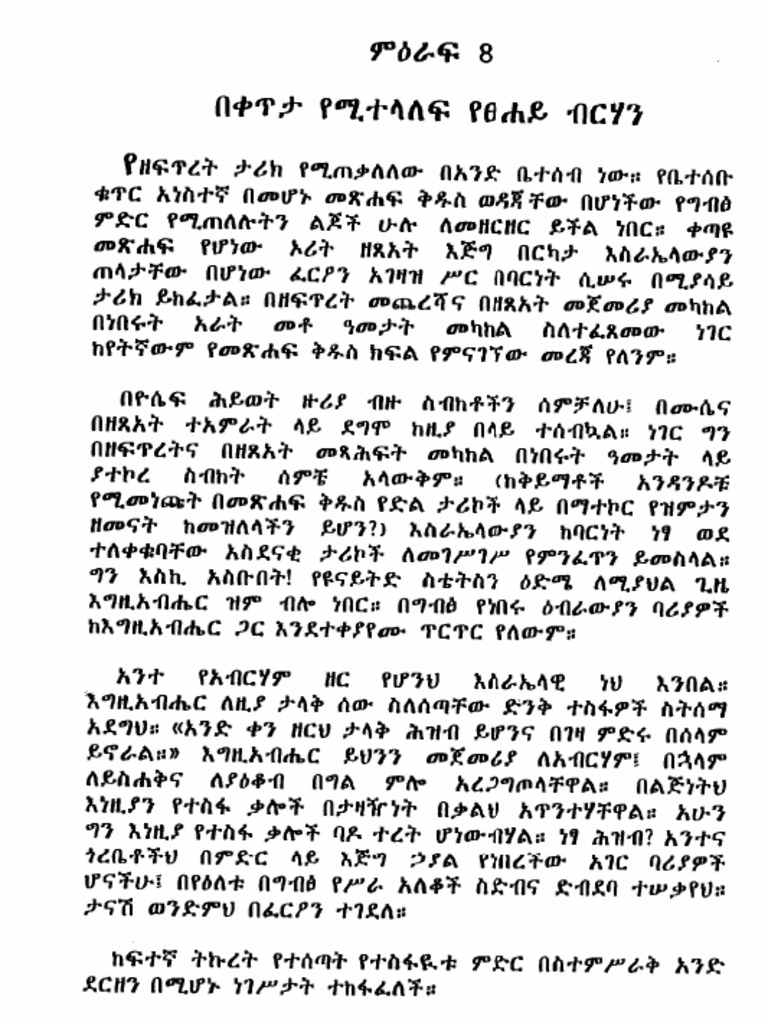 ምዕራፍ 8
በቀጥታ የሚተላለፍ የፀሐይ ብርሃን
የዘፍጥረት ታሪክ የሚጠቃለለው በአንድ ቤተሰብ ነው። የቤተሰቡ
ቁጥር አነስተኛ በመሆኑ መጽሐፍ ቅዱስ ወዳጃቸው በሆነችው የግብፅ
ምድር የሚጠለሉትን ልጆች ሁሉ ለመዘርዘር ይችል ነበር። ቀጣዩ
መጽሐፍ የሆነው ኦሪት ዘጸአት እጅግ በርካታ እስራኤላውያን
ጠላታቸው በሆነው ፈርዖን አገዛዝ ሥር በባርነት ሲሠሩ በሚያሳይ
ታሪክ ይከፈታል። በዘፍጥረት መጨረሻና በዘጸአት መጀመሪያ መካከል
በነበሩት አራት መቶ ዓመታት መካከል ስለተፈጸመው ነገር
ከየትኛውም የመጽሐፍ ቅዱስ ክፍል የምናገኘው መረጃ የለንም።
በዮሴፍ ሕይወት ዙሪያ ብዙ ስብከቶችን ሰምቻለሁ፤ በሙሴና
በዘጸአት ተአምራት ላይ ደግሞ ከዚያ በላይ ተሰብኳል። ነገር ግን
በዘፍጥረትና በዘጸአት መጻሕፍት መካከል በነበሩት ዓመታት ላይ
ያተኮረ ስብከት ሰምቼ አላውቅም። (ከቅይማቶች አንዳንዶቹ
የሚመነጩት በመጽሐፍ ቅዱስ የድል ታሪኮች ላይ በማተኮር የዝምታን
ዘመናት ከመዝለላችን ይሆን?) እስራኤላውያን ከባርነት ነፃ ወደ
ተለቀቁባቸው አስደናቂ ታሪኮች ለመገሥገሥ የምንፈጥን ይመስላል።
ግን እስኪ አስቡበት! የዩናይትድ ስቴትስን ዕድሜ ለሚያህል ጊዜ
እግዚአብሔር ዝም ብሎ ነበር። በግብፅ የነበሩ ዕብራውያን ባሪያዎች
ከእግዚአብሔር ጋር እንደተቀያየሙ ጥርጥር የለውም።
አንተ የአብርሃም ዘር የሆንህ እስራኤላዊ ነህ እንበል።
እግዚአብሔር ለዚያ ታላቅ ሰው ስለሰጣቸው ድንቅ ተስፋዎች ስትሰማ
አደግህ። «አንድ ቀን ዘርህ ታላቅ ሕዝብ ይሆንና በገዛ ምድሩ በሰላም
ይኖራል።» እግዚአብሔር ይህንን መጀመሪያ ለአብርሃም፤ በኋላም
ለይስሐቅና ለያዕቆብ በግል ምሎ አረጋግጦላቸዋል። በልጅነትህ
እነዚያን የተስፋ ቃሎች በታዛዥነት በቃልህ አጥንተሃቸዋል። አሁን
ግን እነዚያ የተስፋ ቃሎች ባዶ ተረት ሆነውብሃል። ነፃ ሕዝብ? አንተና
ጎረቤቶችህ በምድር ላይ እጅግ ኃያል የነበረችው አገር ባሪያዎች
ሆናችሁ፤ በየዕለቱ በግብፅ የሥራ አለቆች ስድብና ድብደባ ተሠቃየህ።
ታናሽ ወንድምህ በፈርዖን ተገደለ።
ከፍተኛ ትኩረት የተሰጣት የተስፋዪቱ ምድር በስተምሥራቅ አንድ
ደርዘን በሚሆኑ ነገሥታት ተከፋፈለች።